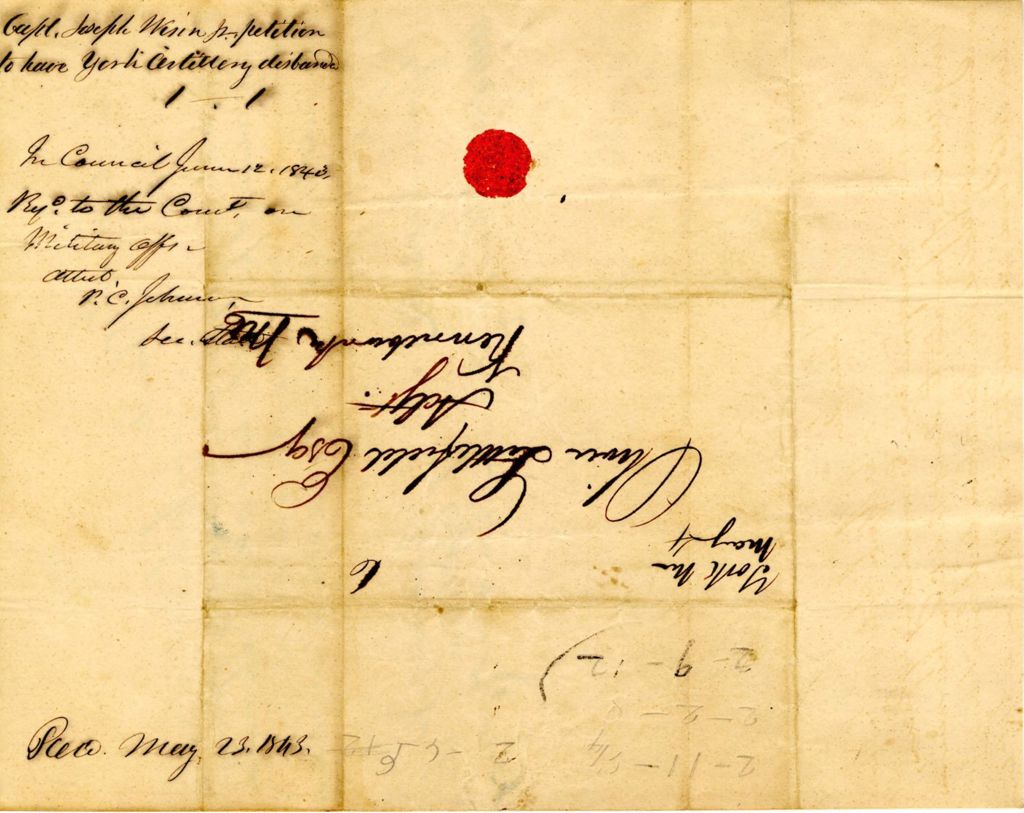 Capt. Joseph Weir Jr. petition
to have York Artillery disband
1 . 1
In Council June 12. 1843.
to the Comt, on
Military Affs
Attest,
P. C. Johnson,
Sec. State
Recd. May 23. 1843.
York Me
May 4
6
Oliver Littlefield Esq
Adjt.
Kennebunk, Me
2-11-5/4
2-2-8
2-9-12